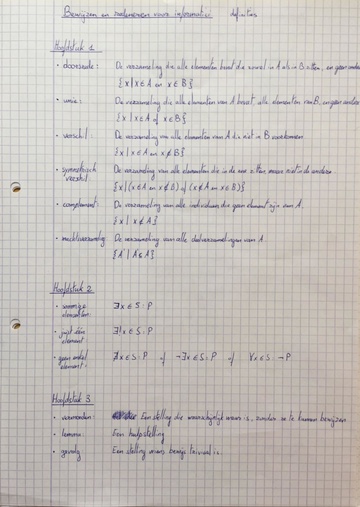 Bewijzen en redeneren voor informatici definities
Hoofdstuk 1
• doorsnede: De verzameling die alle elementen bevat die zowel in A als in B zitten, en geen andere
{x | x ∈ A en x ∈ B}
• unie: De verzameling die alle elementen van A bevat, alle elementen van B, en geen andere
{x | x ∈ A of x ∈ B}
• verschil: De verzameling van alle elementen van A die niet in B voorkomen
{x | x ∈ A en x ∉ B}
• symmetrisch verschil: De verzameling van alle elementen die in de ene zitten maar niet in de andere
{x | (x ∈ A en x ∉ B) of (x ∉ A en x ∈ B)}
• complement: De verzameling van alle individuen die geen element zijn van A.
{x | x ∉ A}
• machtsverzameling: De verzameling van alle deelverzamelingen van A
{A' | A' ⊆ A}
Hoofdstuk 2
• sommige elementen: ∃x ∈ S: P
• juist één element: ∃!x ∈ S: P
• geen enkel element: ∄x ∈ S: P of ¬∃x ∈ S: P of ∀x ∈ S ¬P
Hoofdstuk 3
• vermoeden: Een stelling die waarschijnlijk waar is, zonder ze te kunnen bewijzen
• lemma: Een hulpstelling
• gevolg: Een stelling wiens bewijs triviaal is.